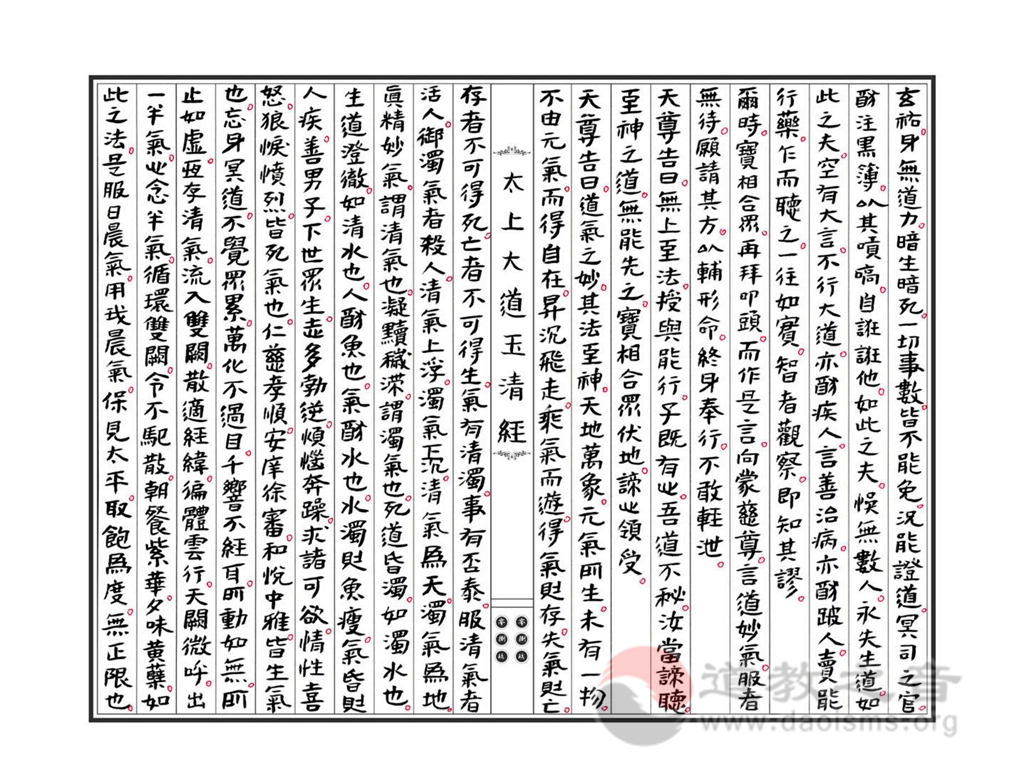 玄祐身無道力暗生暗死一切事數皆不能免況能證道冥司之官
酧注黒簿以其嗔嗃自誑誑他如此之夫悞無數人永失生道如
此之夫空有大言不行大道亦酧疾人言善治病亦酧跛人賣能
行藥乍而聽之一往如實智者觀察即知其謬
爾時寶相合眾再拜叩頭而作是言向蒙慈尊言道妙氣服者
無待願請其方以輔形命終身奉行不敢輕泄
天尊告曰無上至法授與能行子既有心吾道不秘汝當諦聽
至神之道無能先之寶相合眾伏地諦心領受
天尊告曰道氣之妙其法至神天地萬象元氣所生未有一物
不由元氣而得自在昇沉飛走乘氣而遊得氣則存失氣則亡
太上大道玉清經
存者不可得死亡者不可得生氣有清濁事有否泰服清氣者
活人御濁氣者殺人清氣上浮濁氣下沉清氣為天濁氣為地
真精妙氣謂清氣也凝黷穢滓謂濁氣也死道昏濁如濁水也
生道澄徹如清水也人酧魚也氣酧水也水濁則魚瘦氣昏則
人疾善男子下世眾生志多勃逆煩惱奔躁求諸可欲情性喜
怒狼悷憤烈皆死氣也仁慈孝順安庠徐審和悅中雅皆生氣
也忘身冥道不覺眾累萬化不過目千響不經耳所動如無所
止如虛恆存清氣流入雙闕散適經緯徧體雲行天關微呼出
一半氣心念半氣循環雙闕令不馳散朝餐紫華夕味黃蘗如
此之法是服日晨氣用戎晨氣保見太平取飽為度無正限也
道教之音
www.daoisms.org